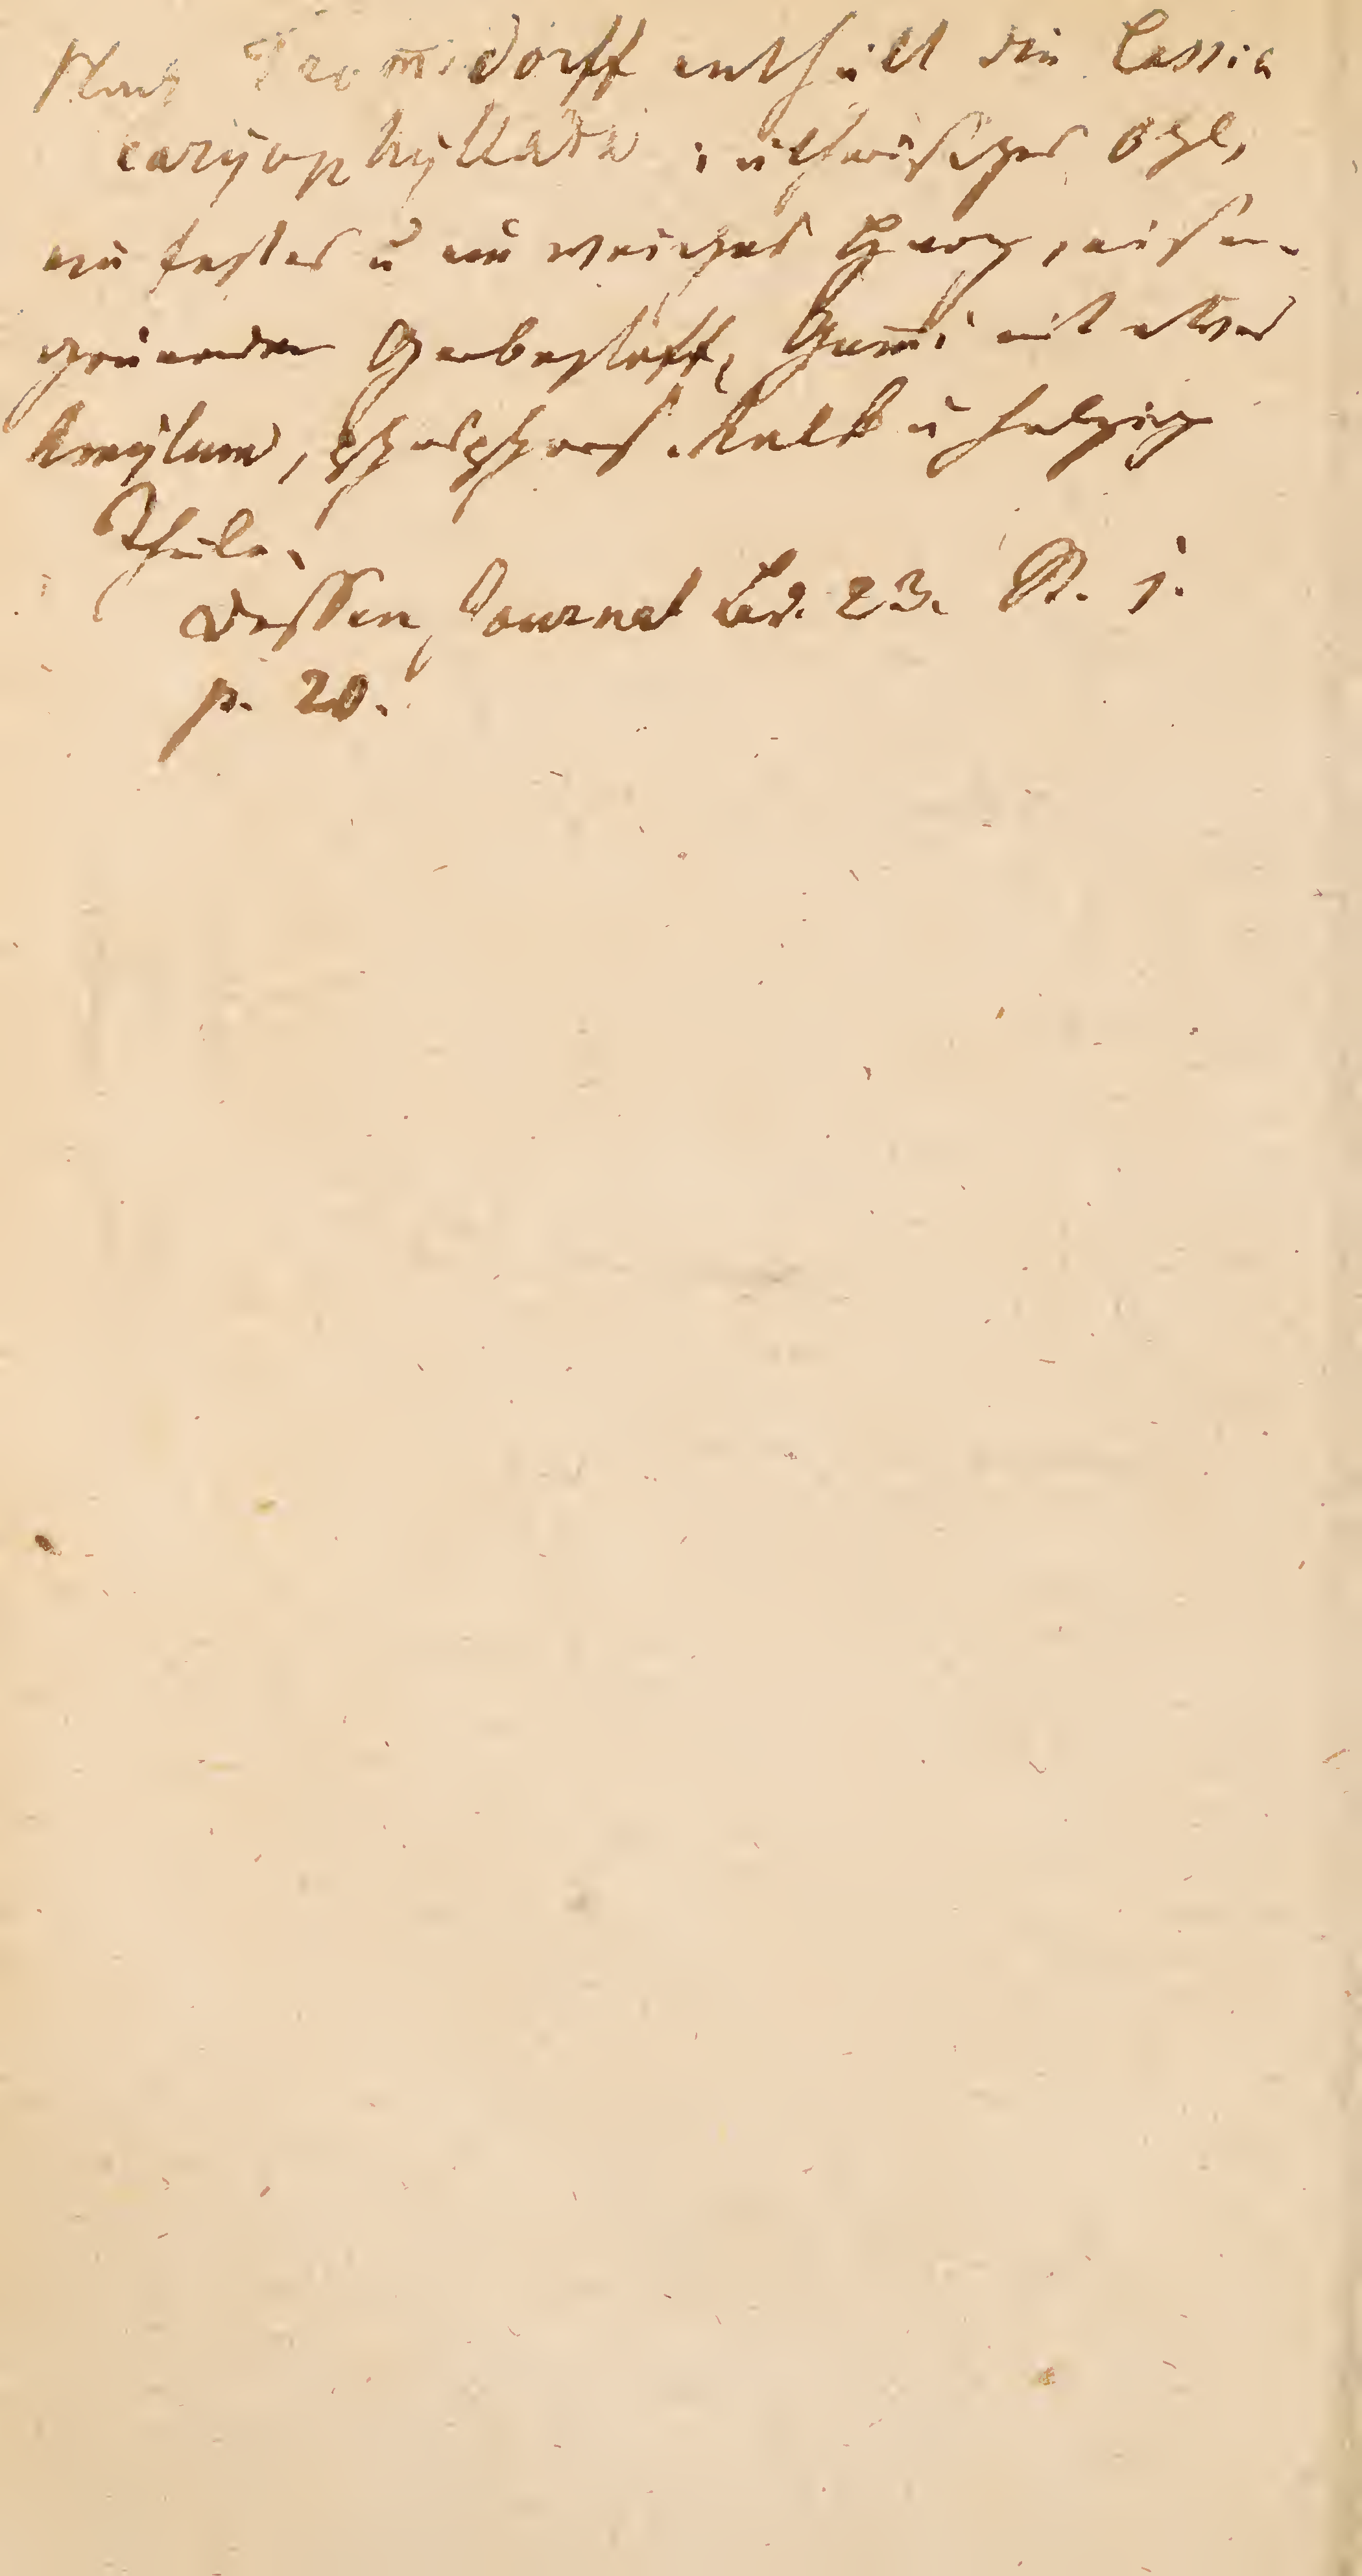 Nach Trom̅sdorff enthält die Cassia
caryophyllata: ätherisches Oehl,
ein festes u ein weiches Harz, eisen-
grünenden Gerbestoff, Gum̅i mit etwas
Amylum, phosphors. Kalk u holzige
Theile.
Dessen Journal Bd. 23. St. 1.
p. 20.